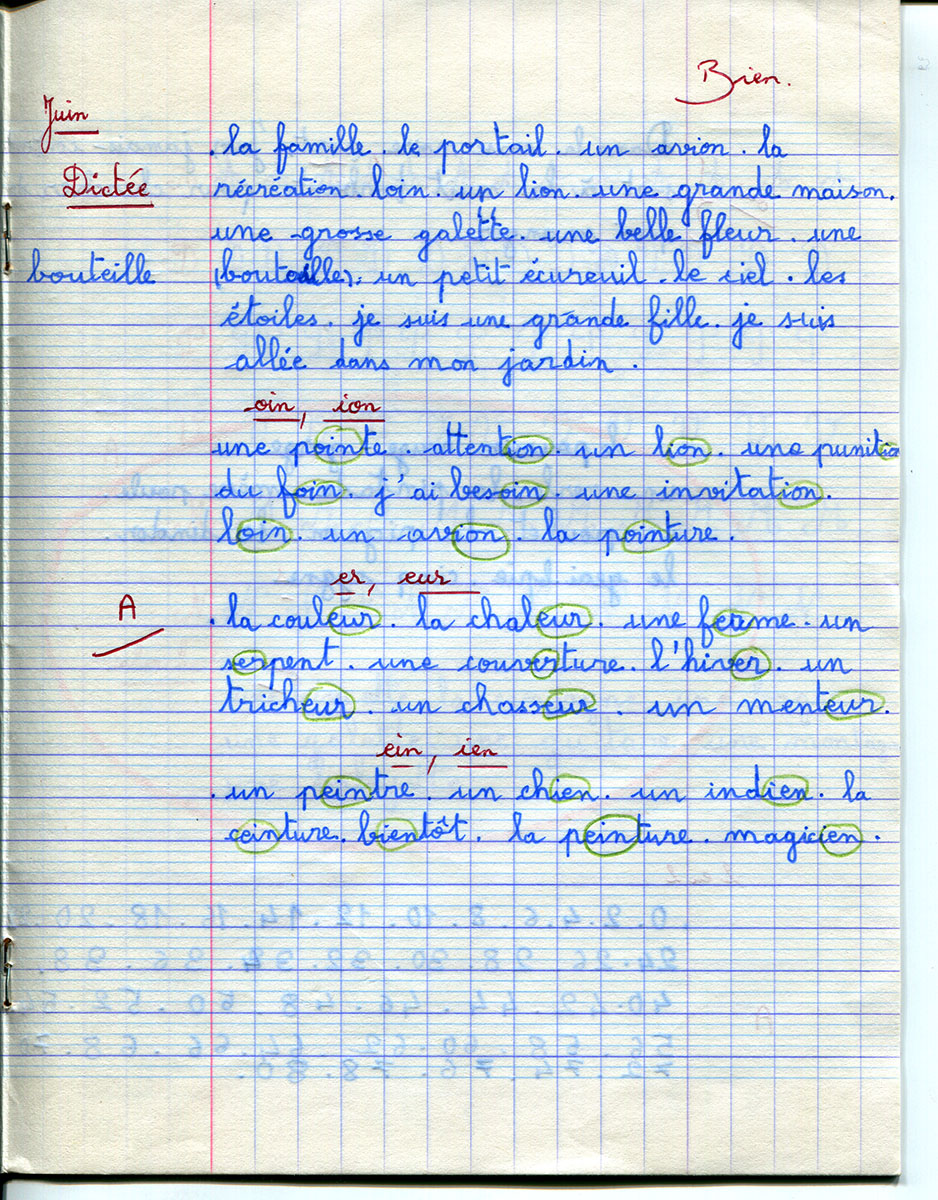 Bien.
Juin
. la famille . le portail . un avion . la
Dictée
récréation . loin . un lion . une grande maison.
une grosse galette . une belle fleur . une
bouteille
(boutaille). un petit écureuil . le ciel . les
étoiles . je suis une grande fille . je suis
allée dans mon jardin .
oin, ion
une pointe . attention . un lion . une punitio
du foin . j'ai besoin . une invitation .
loin . un avion . la pointure .
er, eur
A
. la couleur . la chaleur . une ferme . un
serpent . une couverture . l'hiver . un
tricheur . un chasseur . un menteur .
ein, ien
. un peintre . un chien . un indien . la
ceinture . bientôt . la peinture . magicien .